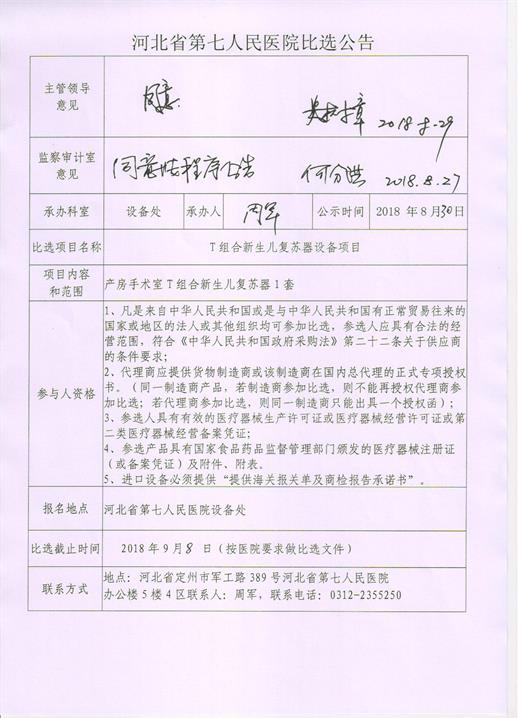 河北省第七人民医院比选公告
主管领导
意见
同意
2018-8-29
监察审计室
意见
同意按程序公告
2018.8.27
承办科室
设备处
承办人
周军
公示时间
2018 年8月30日
比选项目名称
T组合新生儿复苏器设备项目
项目内容
和范围
产房手术室T组合新生儿复苏器1套
参与人资格
1、凡是来自中华人民共和国或是与中华人民共和国有正常贸易往来的
国家或地区的法人或其他组织均可参加比选,参选人应具有合法的经
营范围,符合《中华人民共和国政府采购法》第二十二条关于供应商
的条件要求;
2、代理商应提供货物制造商或该制造商在国内总代理的正式专项授权
书。(同一制造商产品,若制造商参加比选,则不能再授权代理商参
加比选;若代理商参加比选,则同一制造商只能出具一个授权函);
3、参选人具有有效的医疗器械生产许可证或医疗器械经营许可证或第
二类医疗器械经营备案凭证;
4、参选产品具有国家食品药品监督管理部门颁发的医疗器械注册证
(或备案凭证)及附件、附表。
5、进口设备必须提供“提供海关报关单及商检报告承诺书”。
报名地点
河北省第七人民医院设备处
比选截止时间
2018年9月8日(按医院要求做比选文件)
联系方式
地点:河北省定州市军工路389号河北省第七人民医院
办公楼5楼4区联系人:周军,联系电话:0312-2355250